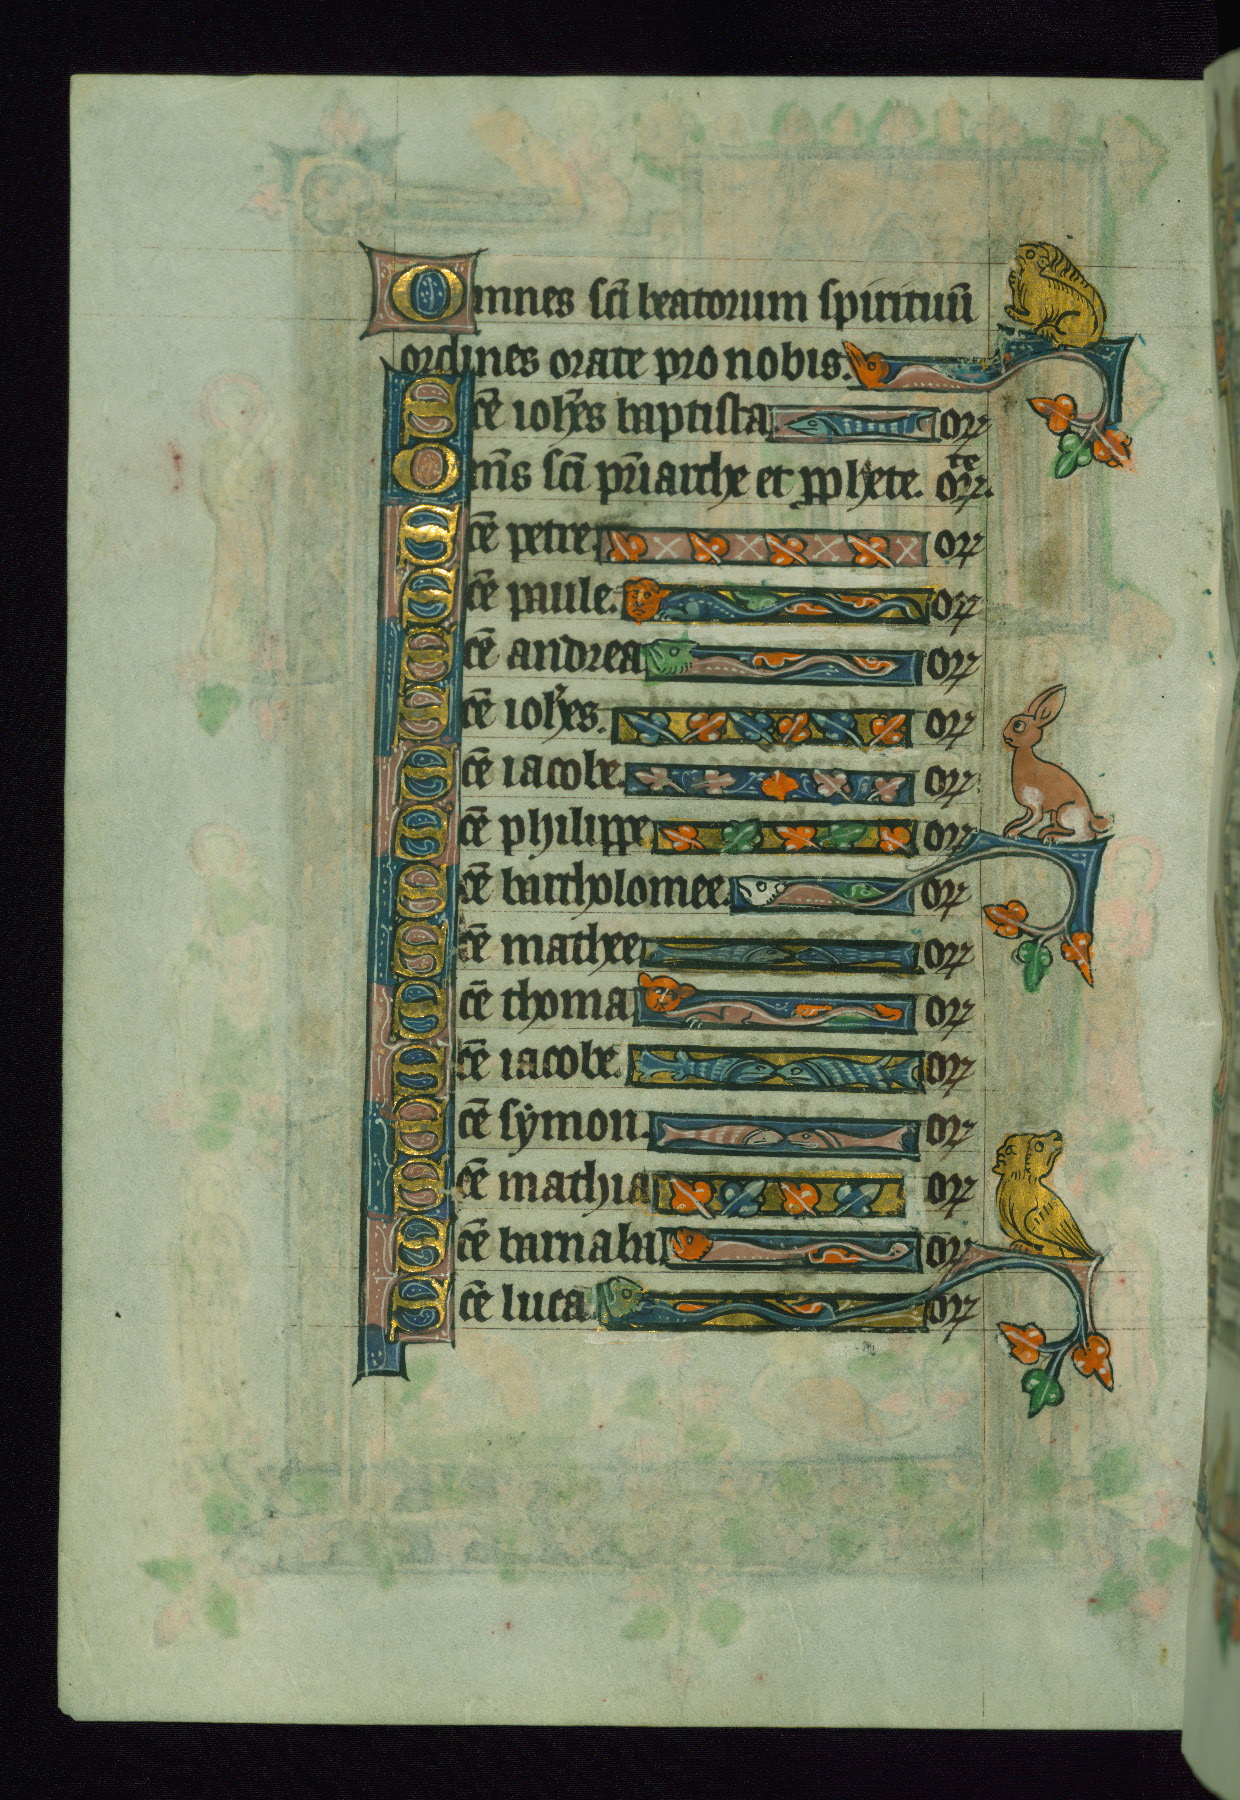 Omnes sc̄i beatorum spirituū
ordines orate pro nobis.
Sc̄e ioh̄es baptista or
Om̄s sc̄i pr̄iarche et ꝓphete. orate.
Sc̄e petre or
Sc̄e paule. or
Sc̄e andrea or
Sc̄e ioh̄es. or
Sc̄e iacobe. or
Sc̄e philippe or
Sc̄e bartholomee. or
Sc̄e mathee or
Sc̄e thoma or
Sc̄e iacobe. or
Sc̄e symon. or
Sc̄e mathia or
Sc̄e barnaba or
Sc̄e luca or